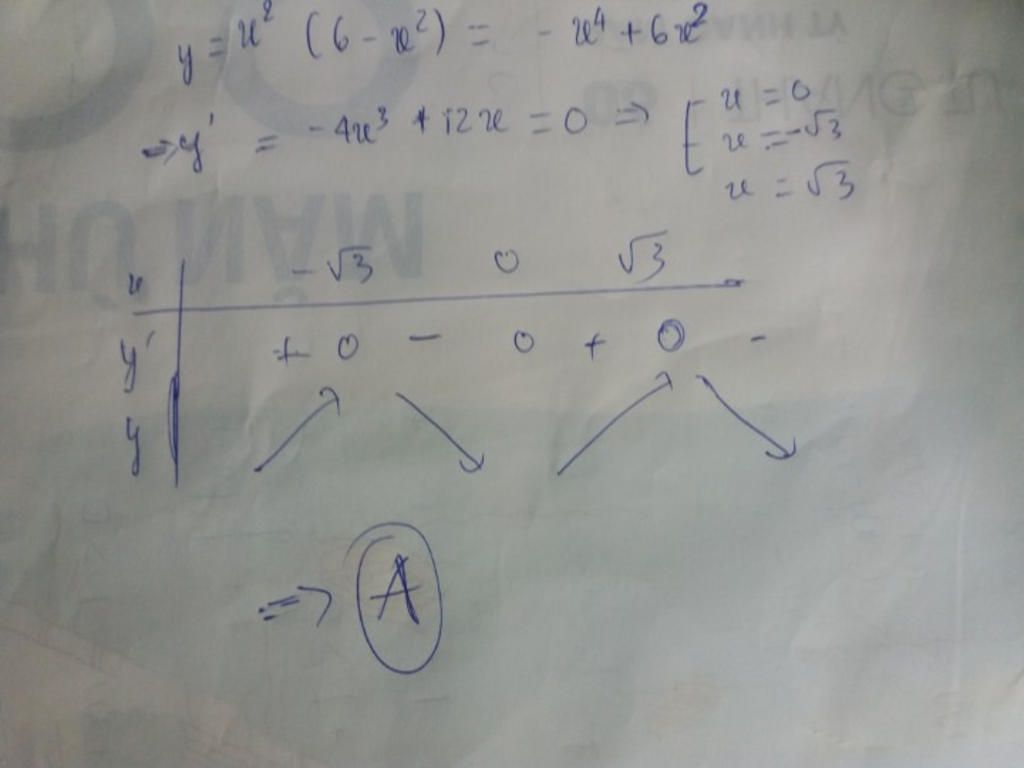 y = x² (6 - x²) = - x⁴ + 6x²
⇒ y' = -4x³ + 12x = 0 ⇒ [ x = 0
x = -√3
x = √3
x -√3 0 √3
y' + 0 - 0 + 0 -
y ↗ ↘ ↗ ↘
⇒ A
MẬN HỮU